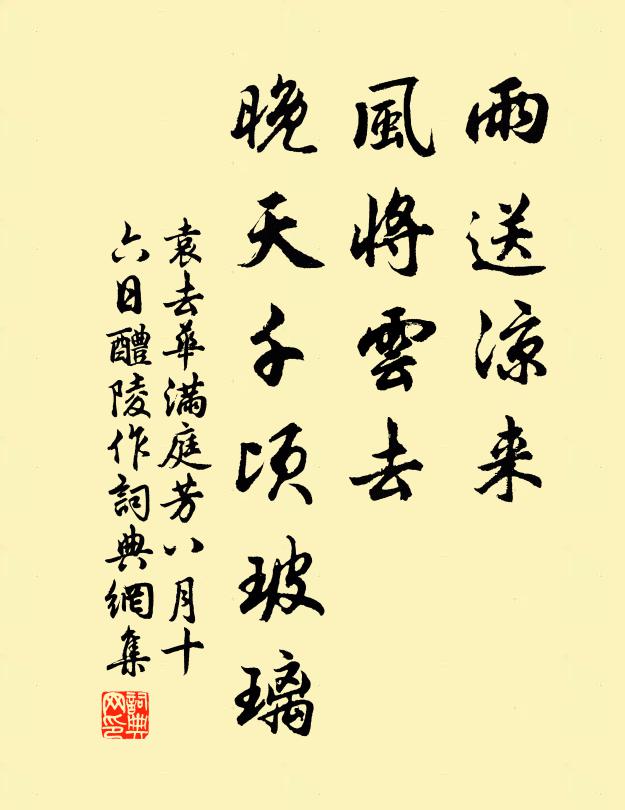 雨送涼来
風將雲去
晚天千頃玻璃
袁去華滿庭芳八月十
六日醴陵作詞典網集
詞典
网印